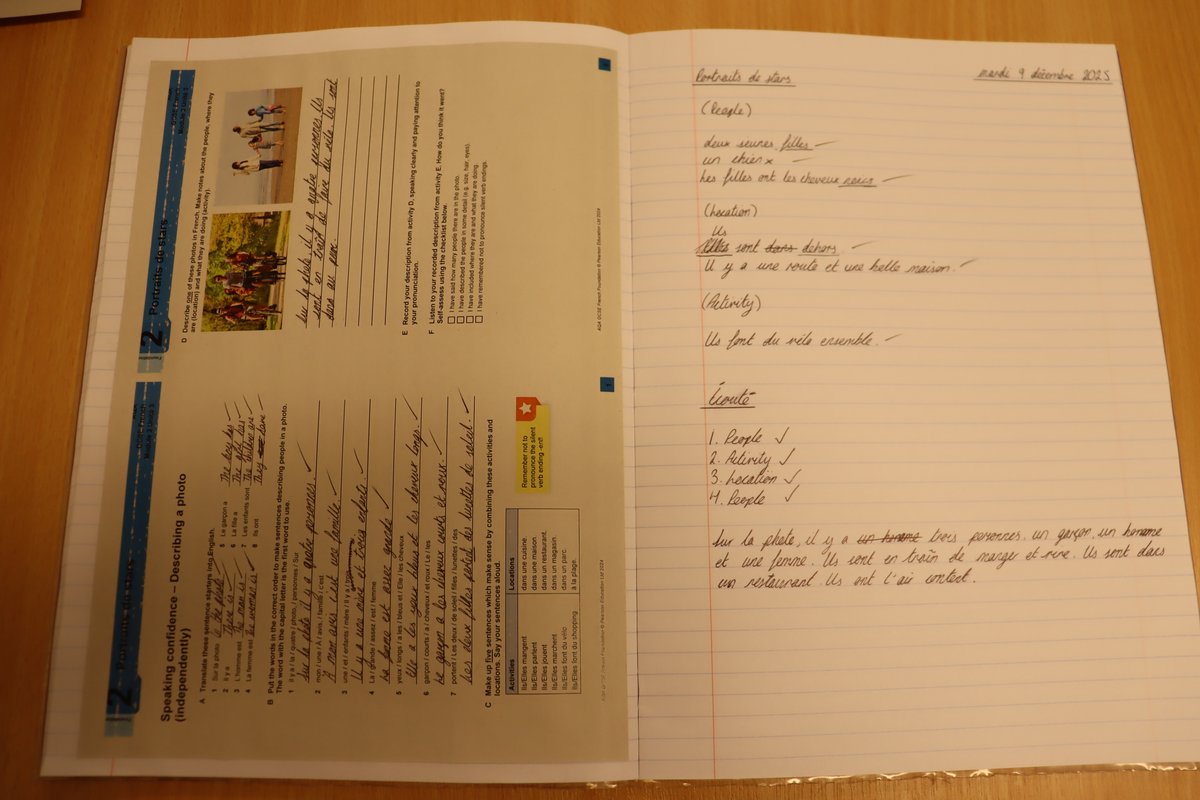 2 Portraits de stars
Speaking confidence – Describing a photo
(independently)
A Translate these sentence starters into English.
1 Sur la photo in the photo
2 Il y a There is
3 L'homme est the man is
4 La femme est the woman is
5 Le garçon a The boy has
6 La fille a The girl has
7 Les enfants sont The children are
8 Ils ont They have
B Put the words in the correct order to make sentences describing people in a photo.
The word with the capital letter is the first word to use.
1 il y a / la / quatre / photo, / personnes / Sur
Sur la photo il y a quatre personnes.
2 mon / une / À / avis, / famille / c'est
À mon avis c'est une famille.
3 une / et / enfants / mère / Il y a / trois
Il y a une mère et trois enfants.
4 La / grande / assez / est / femme
La femme est assez grande.
5 yeux / longs / a les / bleus et / Elle / les cheveux
Elle a les yeux bleus et les cheveux longs.
6 garçon / courts / a / cheveux / et roux / Le / les
Le garçon a les cheveux courts et roux.
7 portent / Les deux / de soleil / filles / lunettes / des
Les deux filles portent des lunettes de soleil.
C Make up five sentences which make sense by combining these activities and
locations. Say your sentences aloud.
Activities Locations
Ils/Elles mangent dans une cuisine.
Ils/Elles parlent dans une maison.
Ils/Elles jouent dans un restaurant.
Ils/Elles marchent dans un magasin.
Ils/Elles font du vélo dans un parc.
Ils/Elles font du shopping à la plage.
Remember not to
pronounce the silent
verb ending -ent!
1
2 Portraits de stars
D Describe one of these photos in French. Make notes about the people, where they
are (location) and what they are doing (activity).
Sur la photo, il y a quatre personnes. Ils
sont en train de faire du vélo. Ils sont
dans un parc.
E Record your description from activity D, speaking clearly and paying attention to
your pronunciation.
F Listen to your recorded description from activity E. How do you think it went?
Self-assess using the checklist below.
I have said how many people there are in the photo.
I have described the people in some detail (e.g. size, hair, eyes).
I have included where they are and what they are doing.
I have remembered not to pronounce silent verb endings.
AQA GCSE French Foundation © Pearson Education Ltd 2024
2
Portraits de stars
mardi 9 décembre 2025
(People)
deux jeunes filles
un chien
Les filles ont les cheveux noirs
(Location)
Ils
sont dans dehors.
Il y a une route et une belle maison.
(Activity)
Ils font du vélo ensemble.
Écouté
1. People
2. Activity
3. Location
4. People
Sur la photo, il y a trois personnes. un garçon, un homme
et une femme. Ils sont en train de manger et rire. Ils sont dans
un restaurant. Ils ont l'air content.